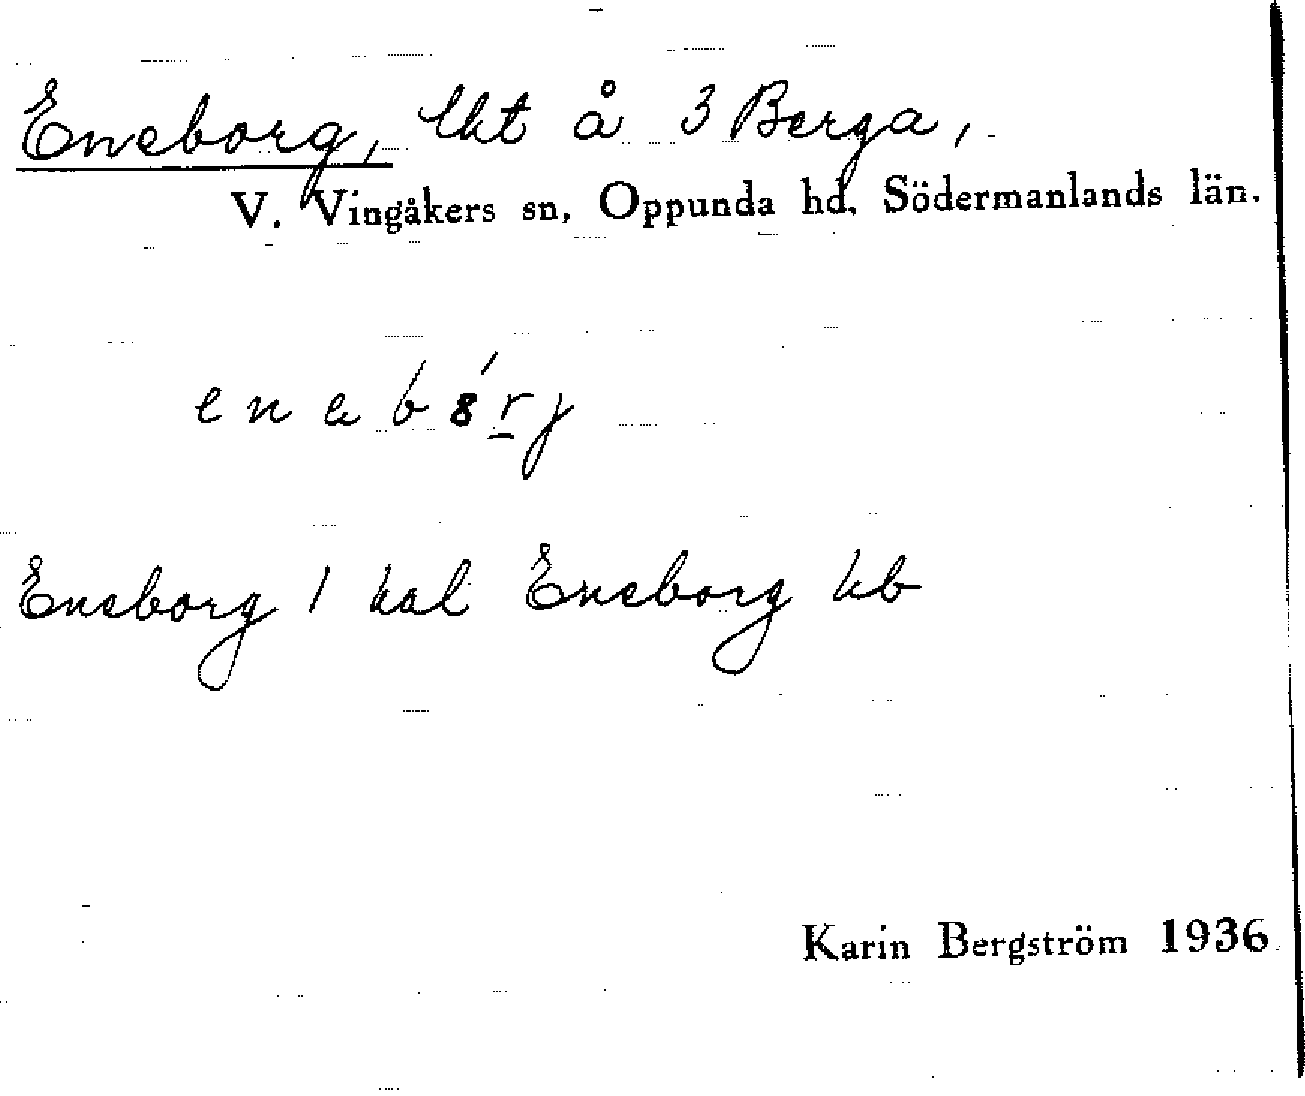 Eneborg, lht å 3 Berga,
V. Vingåkers sn, Oppunda hd, Södermanlands län.
Eneborg 1 hal Eneborg hb
Karin Bergström 1936